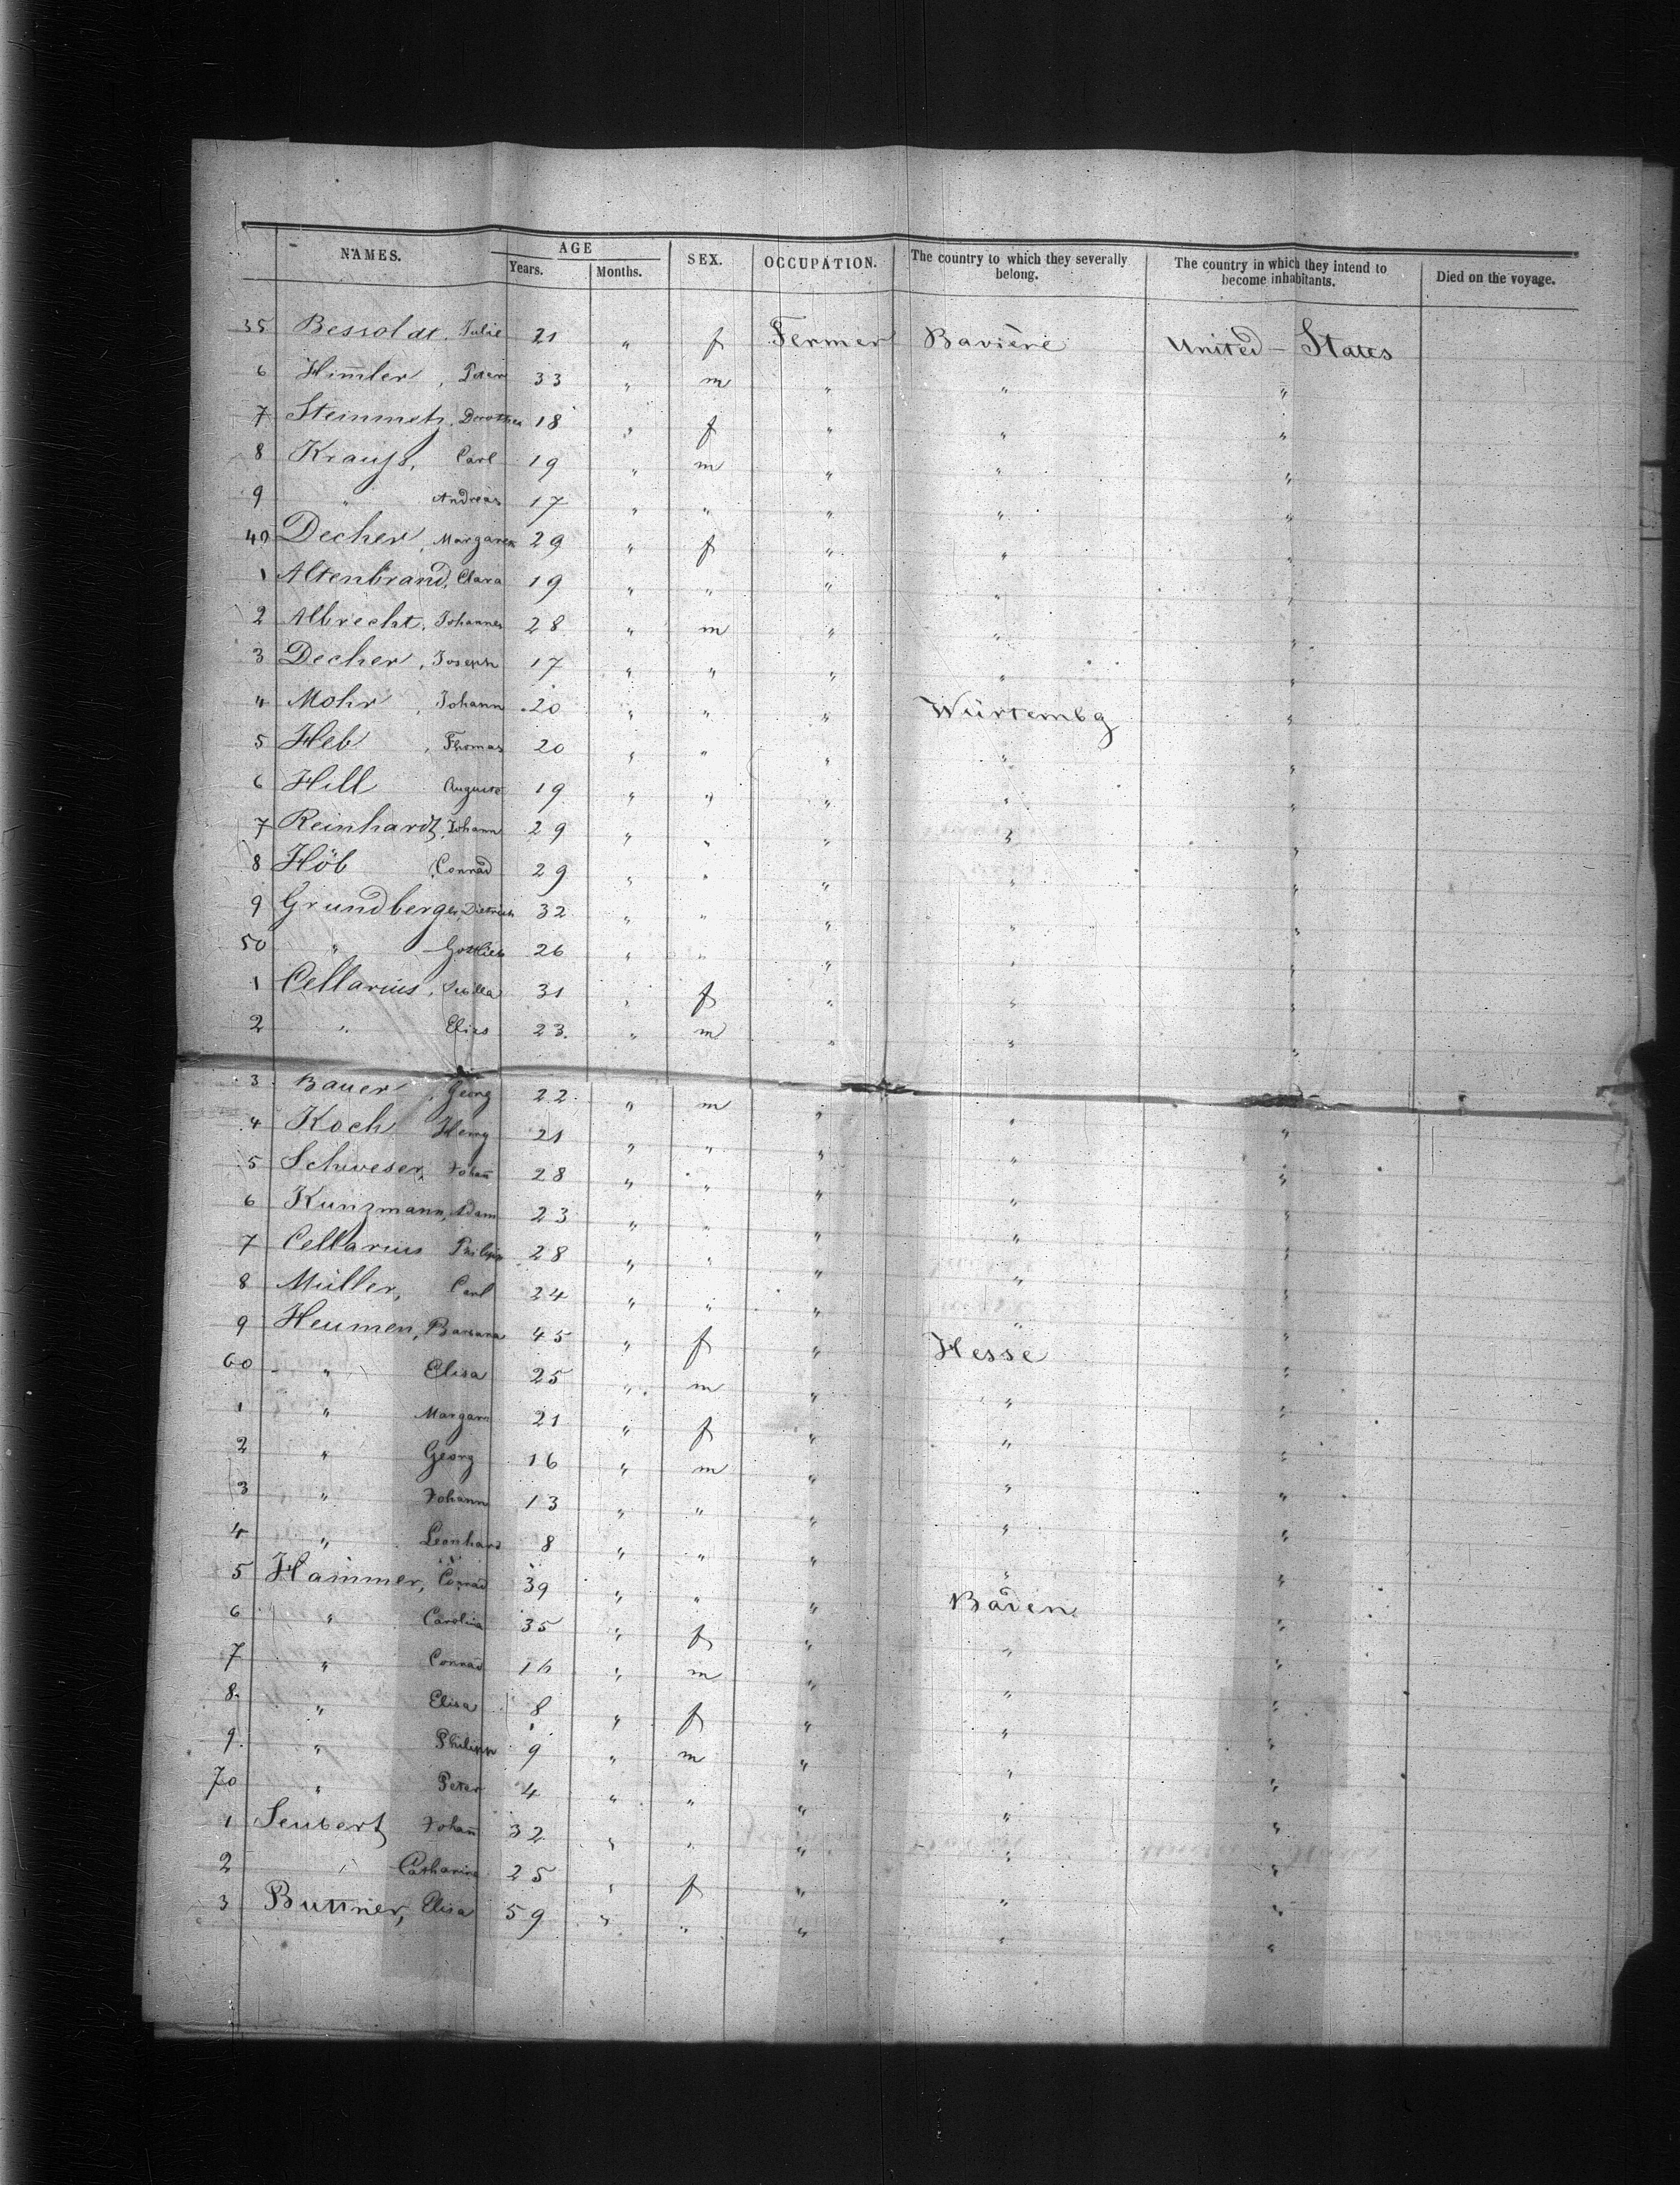 NAMES. AGE SEX. OCCUPATION. The country to which they severally belong. The country in which they intend to become inhabitants. Died on the voyage.
Years. Months.
35 Bessoldt, Julie 21 " f Fermer Bavière United - States
6 Him̄ler, Peter 33 " m " " "
7 Steinmetz, Dorothea 18 " f " " "
8 Krauss, Carl 19 " m " " "
9 " Andreas 17 " " " " "
40 Decher, Margareth 29 " f " " "
1 Altenbrand, Clara 19 " " " " "
2 Albrecht, Johannes 28 " m " " "
3 Decher, Joseph 17 " " " " "
4 Mohr, Johann 20 " " " Würtembg "
5 Heb, Thomas 20 " " " " "
6 Hill Auguste 19 " " " " "
7 Reinhardt, Johann 29 " " " " "
8 Höb, Conrad 29 " " " " "
9 Grundberger, Dietrich 32 " " " " "
50 " Gottlieb 26 " " " " "
1 Cellarius, 31 " f " " "
2 " Elies 23 " m " " "
3 Bauer, Georg 22 " m " " "
4 Koch Henry 21 " " " " "
5 Schweser, Johan̄ 28 " " " " "
6 Kunzmann, Adam 23 " " " " "
7 Cellarius Philipp 28 " " " " "
8 Müller, Carl 24 " " " " "
9 Heumen, Barbara 45 " f " Hesse "
60 " Elisa 25 " m " " "
1 " Margare 21 " f " " "
2 " Georg 16 " m " " "
3 " Johann 13 " " " " "
4 " Leonhard 8 " " " " "
5 Hammer, Conrad 39 " " " Baden "
6 " Carolina 35 " f " " "
7 " Connad 16 " m " " "
8 " Elisa 8 " f " " "
9 " Philipp 9 " m " " "
70 " Peter 4 " " " " "
1 Seubert Johan̄ 32 " " " " "
2 " Catharine 25 " f " " "
3 Buttner, Elisa 59 " " " " "